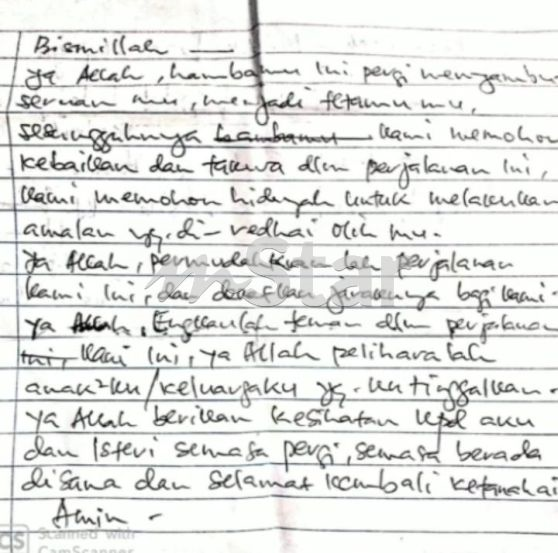 Bismillah —
ya Allah, hambamu ini pergi mengambu
seruan mu, menjadi tetamu mu,
sesungguhnya hambamu kami memohon
kebaikan dan takwa dlm perjalanan ini,
kami memohon hidayah untuk melakukan
amalan yg. di-redhai oleh mu.
ya Allah, permudahkan lah perjalanan
kami ini, dan dekatkan jaraknya bagi kami.
ya Allah, Engkaulah teman dlm perjalanan
ini, kami ini, ya Allah peliharalah
anak²ku/keluargaku yg. ku tinggalkan.
ya Allah berikan kesihatan kpd aku
dan Isteri semasa pergi, semasa berada
disana dan selamat kembali ketanahai
Amin -
mStar
CS Scanned with
CamScanner